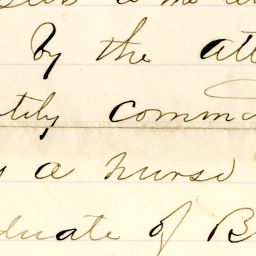 to me
by the att
tily comm
a nurse
duate of B